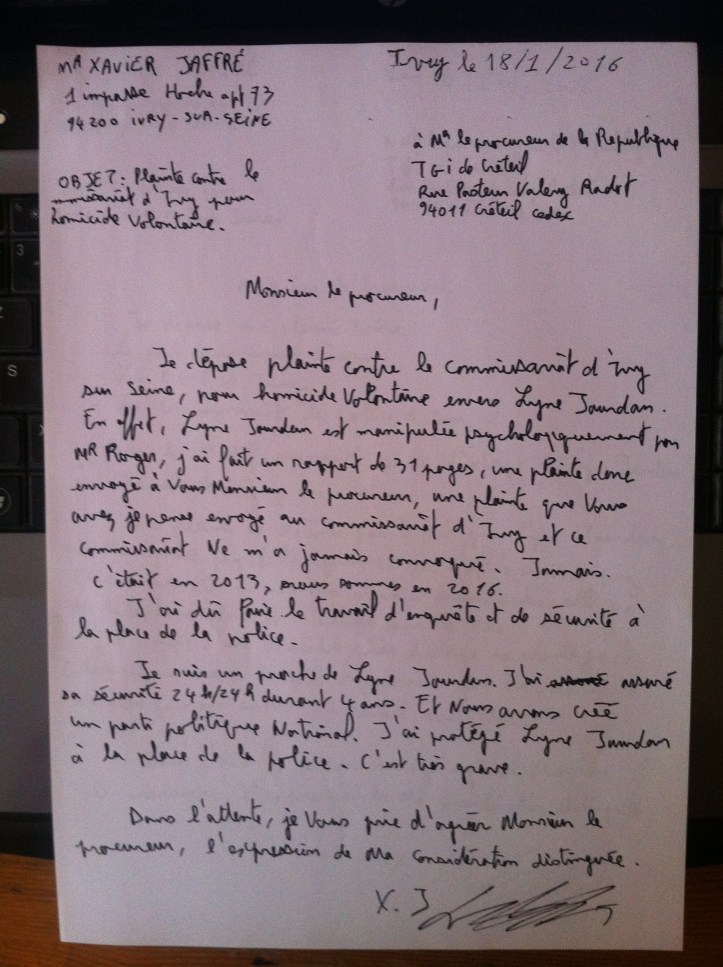 Mr XAVIER JAFFRÉ
1 impasse Hoche apt 73
94200 IVRY-SUR-SEINE
Ivry le 18/1/2016
à Mr le procureur de la République
TGI de Créteil
Rue Pasteur Valery Radot
94011 Créteil cedex
OBJET: Plainte contre le
commissariat d'Ivry pour
homicide Volontaire.
Monsieur le procureur,
Je dépose plainte contre le commissariat d'Ivry
sur Seine, pour homicide Volontaire envers Lyne Jourdan.
En effet, Lyne Jourdan est manipulée psychologiquement par
MR Roger, j'ai fait un rapport de 31 pages, une plainte donc
envoyé à Vous Monsieur le procureur, une plainte que Vous
avez je pense envoyé au commissariat d'Ivry et ce
commissariat Ne m'a jamais convoqué. Jamais.
c'était en 2013, nous sommes en 2016.
J'ai dû Faire le travail d'enquête et de sécurité à
la place de la police.
Je suis un proche de Lyne Jourdan. J'ai assuré
sa sécurité 24h/24h durant 4 ans. Et Nous avons créé
un parti politique National. J'ai protégé Lyne Jourdan
à la place de la police. C'est très grave.
Dans l'attente, je Vous prie d'agréer Monsieur le
procureur, l'expression de Ma considération distinguée.
X. J